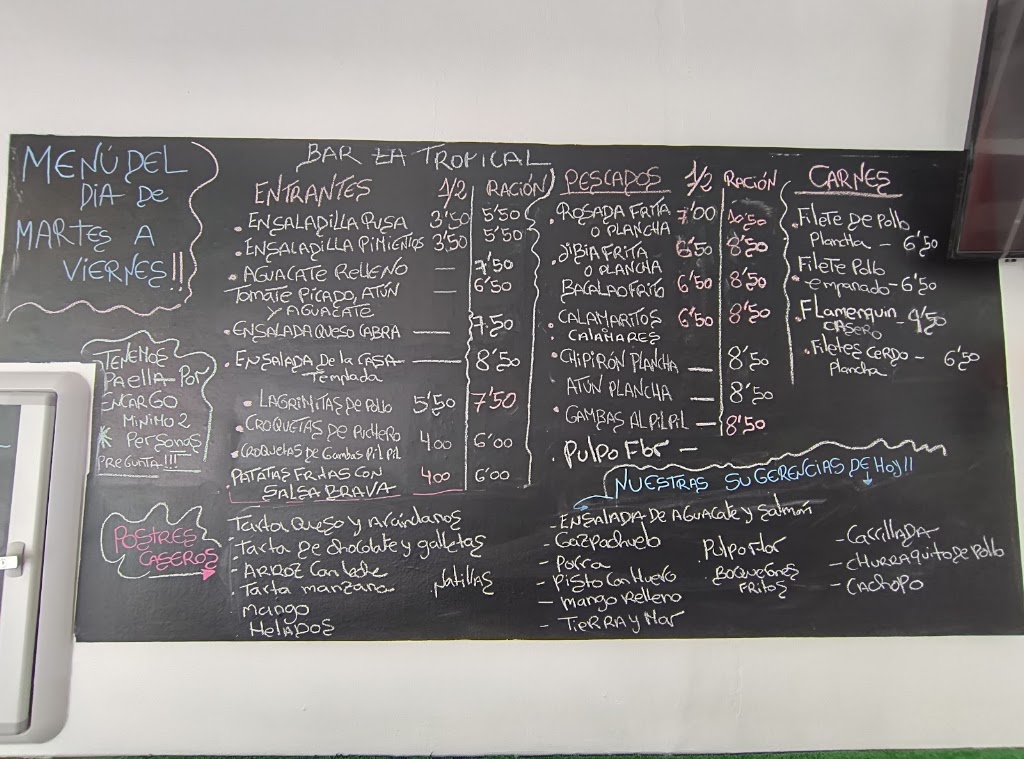 MENÚ DEL
DIA DE
MARTES A
VIERNES!!
TENEMOS
PAELLA POR
ENCARGO
MINIMO 2
* Personas
PREGUNTA!!!
POSTRES
CASEROS
BAR LA TROPICAL
ENTRANTES 1/2 RACIÓN
. ENSALADILLA RUSA 3'50 5'50
. ENSALADILLA PIMIENTOS 3'50 5'50
. AGUACATE RELLENO — 7'50
TOMATE PICADO, ATÚN — 6'50
Y AGUACATE
. ENSALADA QUESO CABRA — 7.50
. ENSALADA De la CASA — 8'50
Templada
. LAGRIMITAS DE POLLO 5'50 7'50
. CROQUETAS DE PUCHERO 4,00 6'00
. CROQUETAS DE Gambas Pil Pil
PATATAS FRITAS CON 4,00 6'00
SALSA BRAVA
Tarta Queso y Arándanos
. Tarta de chocolate y galletas
- ARROZ Con leche
. Tarta manzana . Natillas
Mango
HELADOS
PESCADOS 1/2 RACIÓN
. ROSADA FRITA 7'00 10'50
O PLANCHA
. JIBIA FRITA 6'50 8'50
O PLANCHA
BACALAO FRITO 6'50 8'50
. CALAMARITOS 6'50 8'50
. CALAMARES
. CHIPIRÓN PLANCHA — 8'50
. ATÚN PLANCHA — 8'50
. GAMBAS AL PIL PIL — 8'50
. PULPO Flor —
CARNES
. Filete de Pollo
Plancha — 6'50
Filete Pollo
. empanado - 6'50
. Flamenquin - 4'50
CASERO
. Filetes CERDO - 6'50
Plancha
NUESTRAS SUGERENCIAS DE HOY!!
- ENSALADA DE AGUACATE y Salmón
- Gazpachuelo
- PORRA
- PISTO Con Huevo
- mango Relleno
- TIERRA y Mar
Pulpo Flor
BOQUERONES
FRITOS
- Carrillada
- CHURRASQUITO DE Pollo
- CACHOPO